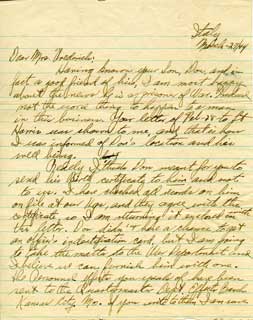 Italy
March 20/44
Dear Mrs. 
Having known your Son, Don, and in
fact a good friend of his, I am most happy
about the news. It is a prisoner of War.
not the worst thing to happen to a man
in this business. Your letter of Feb. 28 to Sgt
Harris was shown to me, and that is how
I was informed of Don's location and his
well being.
Really I think Don meant for you to
send his Birth Certificate to him and not
to us. I have checked all records on him
on file at our Hqs. and they agree with the
certificate, so I am returning it enclosed with
this letter. Don didn't have a chance to get
an officer's indentification card, but I am going
to take the matter to the War Department and
I believe we can furnish him with one.
The Personnel effects you speak of have been
sent to the Quartermaster Depot, Effects Bureau
Kansas City, Mo. If you write to them I am sure